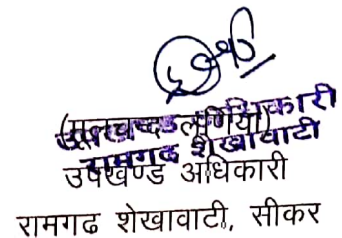 (मूलचन्द लूणिया)
उपखण्ड अधिकारी
रामगढ शेखावाटी
उपखण्ड अधिकारी
रामगढ शेखावाटी, सीकर